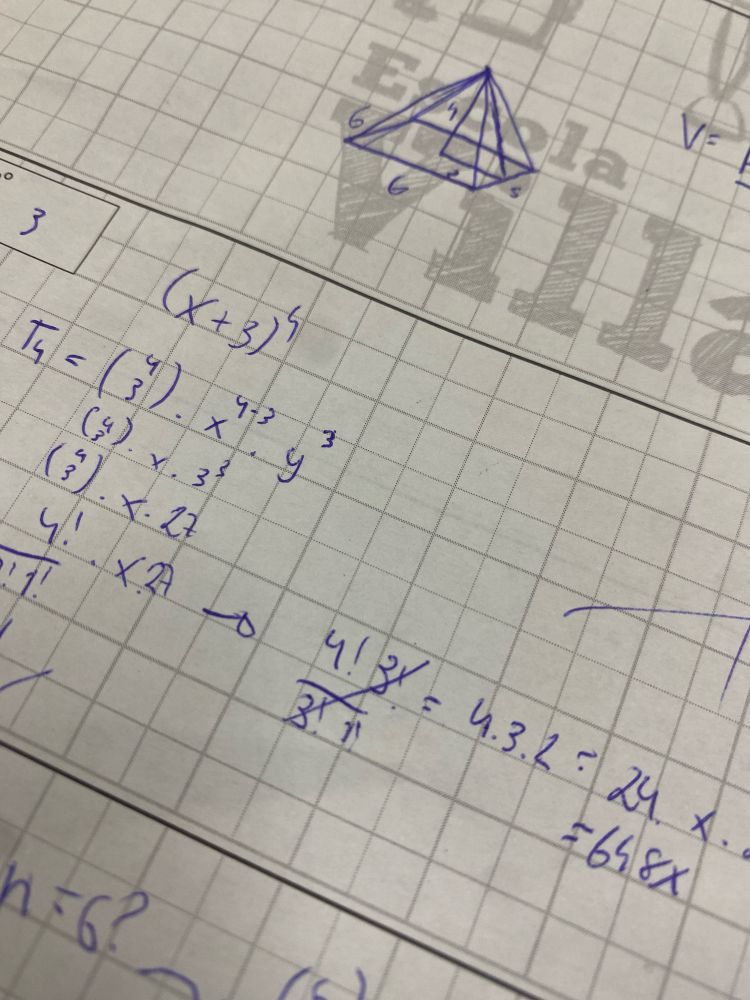 Escola
Villa
4
6
6
3
V=
3
(x+3)⁴
T₄ = (4 3) . x⁴⁻³ . y³
(4 3) . x . 3³
(4 3) . x . 27
4! . x.27
1!
→ 4! 3! = 4.3.2 = 24 . x .
3! 1!
=648x
n=6?